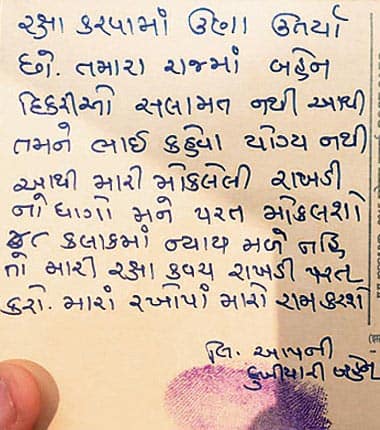 રક્ષા કરવામાં ઉણા ઉતર્યા
છો. તમારા રાજમાં બહેન
દિકરીઓ સલામત નથી આથી
તમને ભાઈ કહેવા યોગ્ય નથી
આથી મારી મોકલેલી રાખડી
નો ધાગો મને પરત મોકલશો
કલાકમાં ન્યાય મળે નહિ
તો મારી રક્ષા કવચ રાખડી પરત
કરો. મારાં રખોપાં મારો રામ કરશે
લિ. આપની
દુખીયારી બહેન